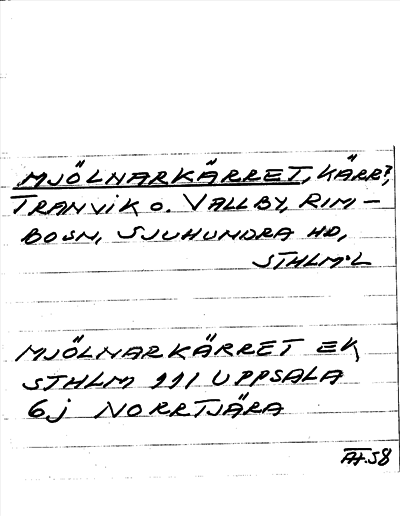 MJÖLNARKÄRRET, KÄRR?,
TRANVIK o. VALLBY, RIM-
BO SN, SJUHUNDRA HD,
STHLM:L
MJÖLNARKÄRRET EK
STHLM 111 UPPSALA
6j NORRTJÄRA